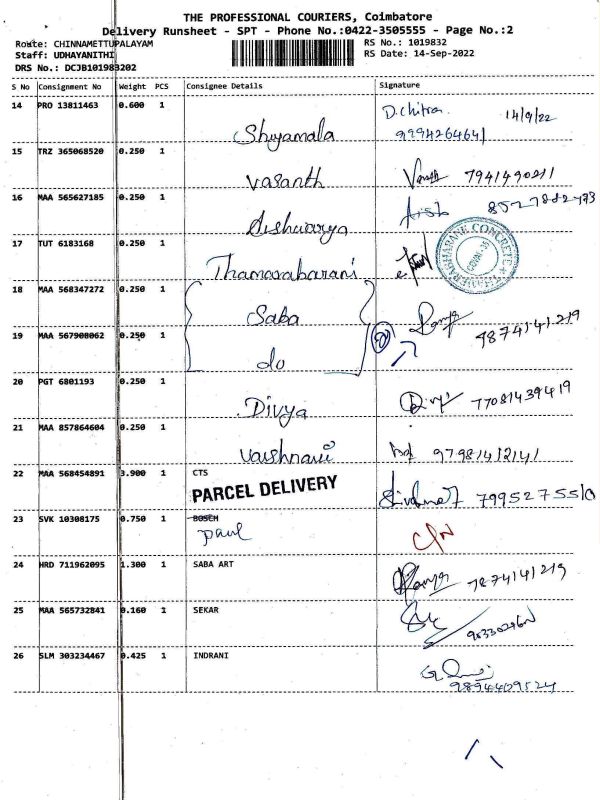 THE PROFESSIONAL COURIERS, Coimbatore
Delivery Runsheet - SPT - Phone No.:0422-3505555 - Page No.:2
Route: CHINNAMETTUPALAYAM RS No.: 1019832
Staff: UDHAYANITHI RS Date: 14-Sep-2022
DRS No.: DCJB101983202
S No Consignment No Weight PCS Consignee Details Signature
14 PRO 13811463 0.600 1 Shyamala D.Chitra 14/9/22
9994264641
15 TRZ 365068520 0.250 1 Vasanth 7941490211
16 MAA 565627185 0.250 1 Aishwarya
17 TUT 6183168 0.250 1 Thamarabarani
18 MAA 568347272 0.250 1 Saba
19 MAA 567908062 0.250 1 do Ramya 9874141219
20 PGT 6801193 0.250 1 Divya 77081439419
21 MAA 857864604 0.250 1 Vaishnavi
22 MAA 568454891 3.900 1 CTS
PARCEL DELIVERY
23 SVK 10308175 0.750 1 BOSCH
Paul
24 HRD 711962095 1.300 1 SABA ART Ramya 9874141219
25 MAA 565732841 0.160 1 SEKAR
26 SLM 303234467 0.425 1 INDRANI
9894409524